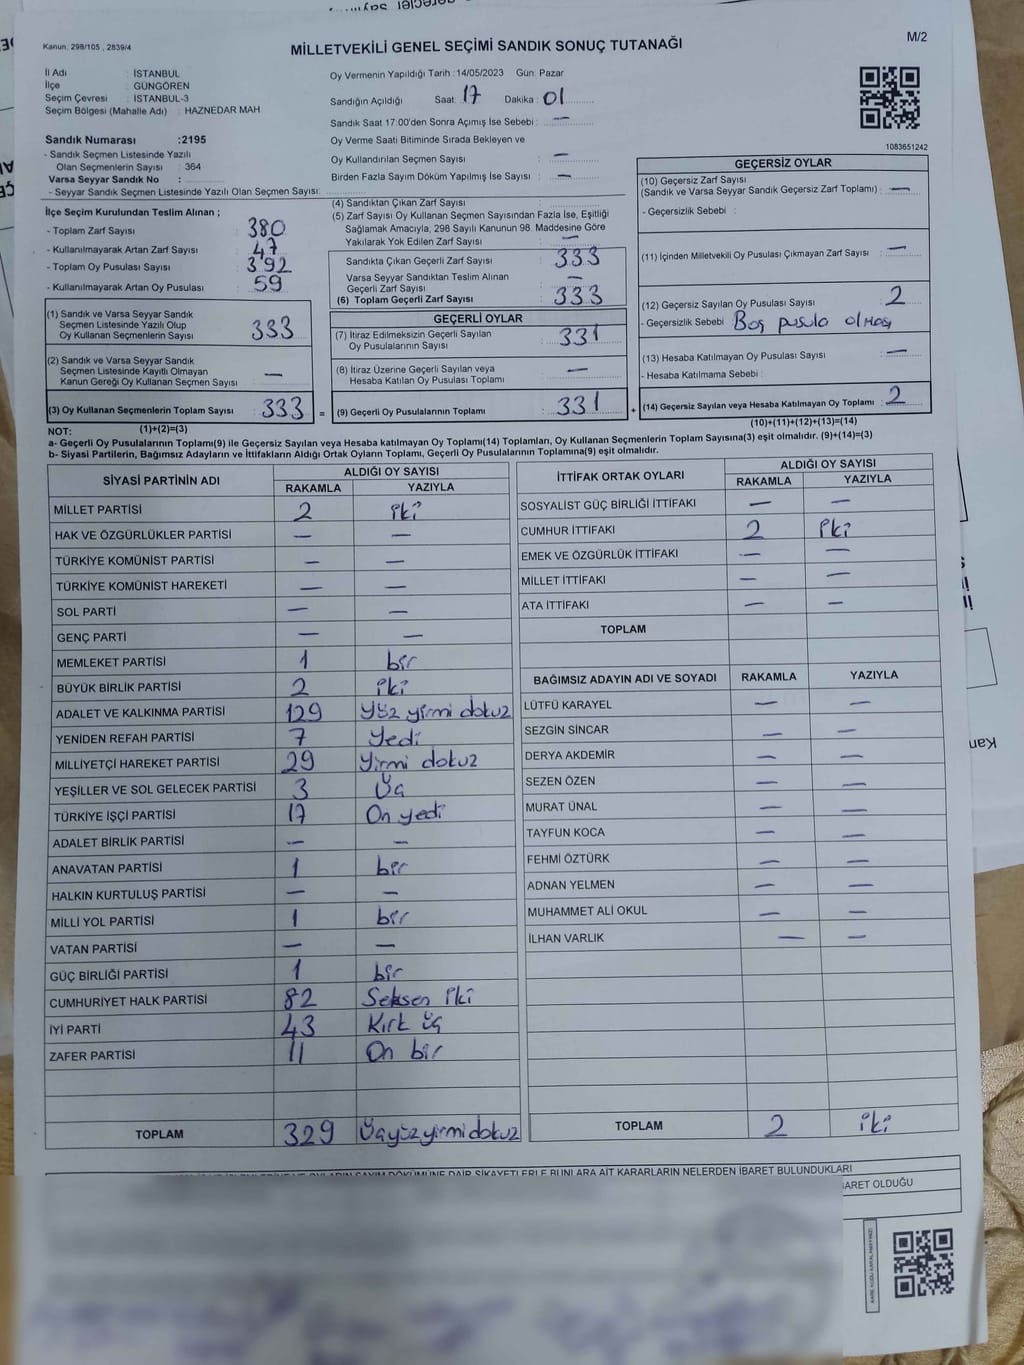 Kanun, 298/105 , 2839/4
MİLLETVEKİLİ GENEL SEÇİMİ SANDIK SONUÇ TUTANAĞI
M/2
İl Adı : İSTANBUL
İlçe : GÜNGÖREN
Seçim Çevresi : İSTANBUL-3
Seçim Bölgesi (Mahalle Adı) : HAZNEDAR MAH
Sandık Numarası :2195
- Sandık Seçmen Listesinde Yazılı
Olan Seçmenlerin Sayısı : 364
Varsa Seyyar Sandık No :
- Seyyar Sandık Seçmen Listesinde Yazılı Olan Seçmen Sayısı:
Oy Vermenin Yapıldığı Tarih :14/05/2023 Gün: Pazar
Sandığın Açıldığı Saat: 17 Dakika : 01
Sandık Saat 17:00'den Sonra Açımış İse Sebebi : —
Oy Verme Saati Bitiminde Sırada Bekleyen ve
Oy Kullandırılan Seçmen Sayısı : —
Birden Fazla Sayım Döküm Yapılmış İse Sayısı : —
1083651242
İlçe Seçim Kurulundan Teslim Alınan ;
- Toplam Zarf Sayısı : 380
- Kullanılmayarak Artan Zarf Sayısı : 47
- Toplam Oy Pusulası Sayısı : 392
- Kullanılmayarak Artan Oy Pusulası : 59
(1) Sandık ve Varsa Seyyar Sandık
Seçmen Listesinde Yazılı Olup
Oy Kullanan Seçmenlerin Sayısı : 333
(2) Sandık ve Varsa Seyyar Sandık
Seçmen Listesinde Kayıtlı Olmayan
Kanun Gereği Oy Kullanan Seçmen Sayısı : —
(3) Oy Kullanan Seçmenlerin Toplam Sayısı : 333
(1)+(2)=(3)
(4) Sandıktan Çıkan Zarf Sayısı :
(5) Zarf Sayısı Oy Kullanan Seçmen Sayısından Fazla İse, Eşitliği
Sağlamak Amacıyla, 298 Sayılı Kanunun 98. Maddesine Göre
Yakılarak Yok Edilen Zarf Sayısı : —
Sandıkta Çıkan Geçerli Zarf Sayısı : 333
Varsa Seyyar Sandıktan Teslim Alınan
Geçerli Zarf Sayısı : —
(6) Toplam Geçerli Zarf Sayısı : 333
GEÇERLİ OYLAR
(7) İtiraz Edilmeksizin Geçerli Sayılan
Oy Pusulalarının Sayısı : 331
(8) İtiraz Üzerine Geçerli Sayılan veya
Hesaba Katılan Oy Pusulası Toplamı : —
= (9) Geçerli Oy Pusulalarının Toplamı : 331
GEÇERSİZ OYLAR
(10) Geçersiz Zarf Sayısı
(Sandık ve Varsa Seyyar Sandık Geçersiz Zarf Toplamı) : —
- Geçersizlik Sebebi :
(11) İçinden Milletvekili Oy Pusulası Çıkmayan Zarf Sayısı : —
(12) Geçersiz Sayılan Oy Pusulası Sayısı : 2
- Geçersizlik Sebebi : Boş pusula olması
(13) Hesaba Katılmayan Oy Pusulası Sayısı : —
- Hesaba Katılmama Sebebi :
+ (14) Geçersiz Sayılan veya Hesaba Katılmayan Oy Toplamı : 2
(10)+(11)+(12)+(13)=(14)
NOT:
a- Geçerli Oy Pusulalarının Toplamı(9) ile Geçersiz Sayılan veya Hesaba katılmayan Oy Toplamı(14) Toplamları, Oy Kullanan Seçmenlerin Toplam Sayısına(3) eşit olmalıdır. (9)+(14)=(3)
b- Siyasi Partilerin, Bağımsız Adayların ve İttifakların Aldığı Ortak Oyların Toplamı, Geçerli Oy Pusulalarının Toplamına(9) eşit olmalıdır.
SİYASİ PARTİNİN ADI ALDIĞI OY SAYISI
RAKAMLA YAZIYLA
MİLLET PARTİSİ 2 iki
HAK VE ÖZGÜRLÜKLER PARTİSİ — —
TÜRKİYE KOMÜNİST PARTİSİ — —
TÜRKİYE KOMÜNİST HAREKETİ — —
SOL PARTİ — —
GENÇ PARTİ — —
MEMLEKET PARTİSİ 1 bir
BÜYÜK BİRLİK PARTİSİ 2 iki
ADALET VE KALKINMA PARTİSİ 129 Yüz yirmi dokuz
YENİDEN REFAH PARTİSİ 7 Yedi
MİLLİYETÇİ HAREKET PARTİSİ 29 Yirmi dokuz
YEŞİLLER VE SOL GELECEK PARTİSİ 3 Üç
TÜRKİYE İŞÇİ PARTİSİ 17 On yedi
ADALET BİRLİK PARTİSİ — —
ANAVATAN PARTİSİ 1 bir
HALKIN KURTULUŞ PARTİSİ — —
MİLLİ YOL PARTİSİ 1 bir
VATAN PARTİSİ — —
GÜÇ BİRLİĞİ PARTİSİ 1 bir
CUMHURİYET HALK PARTİSİ 82 Seksen iki
İYİ PARTİ 43 Kırk üç
ZAFER PARTİSİ 11 On bir
TOPLAM 329 Üçyüzyirmidokuz
İTTİFAK ORTAK OYLARI ALDIĞI OY SAYISI
RAKAMLA YAZIYLA
SOSYALİST GÜÇ BİRLİĞİ İTTİFAKI — —
CUMHUR İTTİFAKI 2 iki
EMEK VE ÖZGÜRLÜK İTTİFAKI — —
MİLLET İTTİFAKI — —
ATA İTTİFAKI — —
TOPLAM
BAĞIMSIZ ADAYIN ADI VE SOYADI RAKAMLA YAZIYLA
LÜTFÜ KARAYEL — —
SEZGİN SİNCAR — —
DERYA AKDEMİR — —
SEZEN ÖZEN — —
MURAT ÜNAL — —
TAYFUN KOCA — —
FEHMİ ÖZTÜRK — —
ADNAN YELMEN — —
MUHAMMET ALİ OKUL — —
İLHAN VARLIK — —
TOPLAM 2 iki
DÖKÜMÜNE DAİR ŞİKAYETLERLE BUNLARA AİT KARARLARIN NELERDEN İBARET BULUNDUKLARI
BARET OLDUĞU